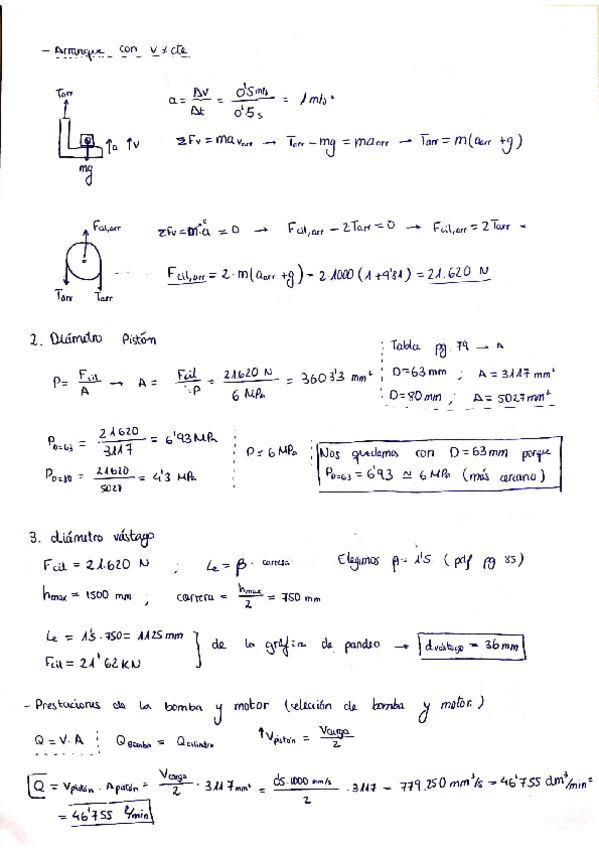 - Arranque con V≠cte
Tarr
a = Δv/Δt = 0'5 m/s / 0'5 s = 1 m/s²
↑a ↑V
mg
ΣFv = ma varr → Tarr - mg = maarr → Tarr = m(aarr + g)
Fcil,arr
Tarr Tarr
ΣFv = m·a = 0 → Fcil,arr - 2Tarr = 0 → Fcil,arr = 2Tarr =
Fcil,arr = 2·m(aarr + g) = 2·1000 (1+9'81) = 21.620 N
2. Diámetro Pistón
Tabla pg. 79 → A
P = Fcil/A → A = Fcil/P = 21620 N / 6 MPa = 3603'3 mm²
D=63mm ; A = 3117 mm²
D=80mm ; A = 5027mm²
P D=63 = 21620/3117 = 6'93 MPa
P D=80 = 21620/5027 = 4'3 MPa
P = 6 MPa
Nos quedamos con D=63mm porque
P D=63 = 6'93 ≃ 6 MPa (más cercano)
3. diámetro vástago
Fcil = 21.620 N ; Le = β · carrera Elegimos β = 1'5 (pdf pg 85)
hmax = 1500 mm ; carrera = hmax/2 = 750 mm
Le = 1'5·750 = 1125 mm
Fcil = 21'62 KN
de la gráfica de pandeo → dvástago = 36mm
- Prestaciones de la bomba y motor (selección de bomba y motor)
Q = V·A QBomba = Qcilindro ↑Vpistón = Vcarga/2
Q = Vpistón · Apistón = Vcarga/2 · 3117 mm² = 0'5·1000 mm/s / 2 · 3117 = 779.250 mm³/s = 46'755 dm³/min =
= 46'755 ℓ/min